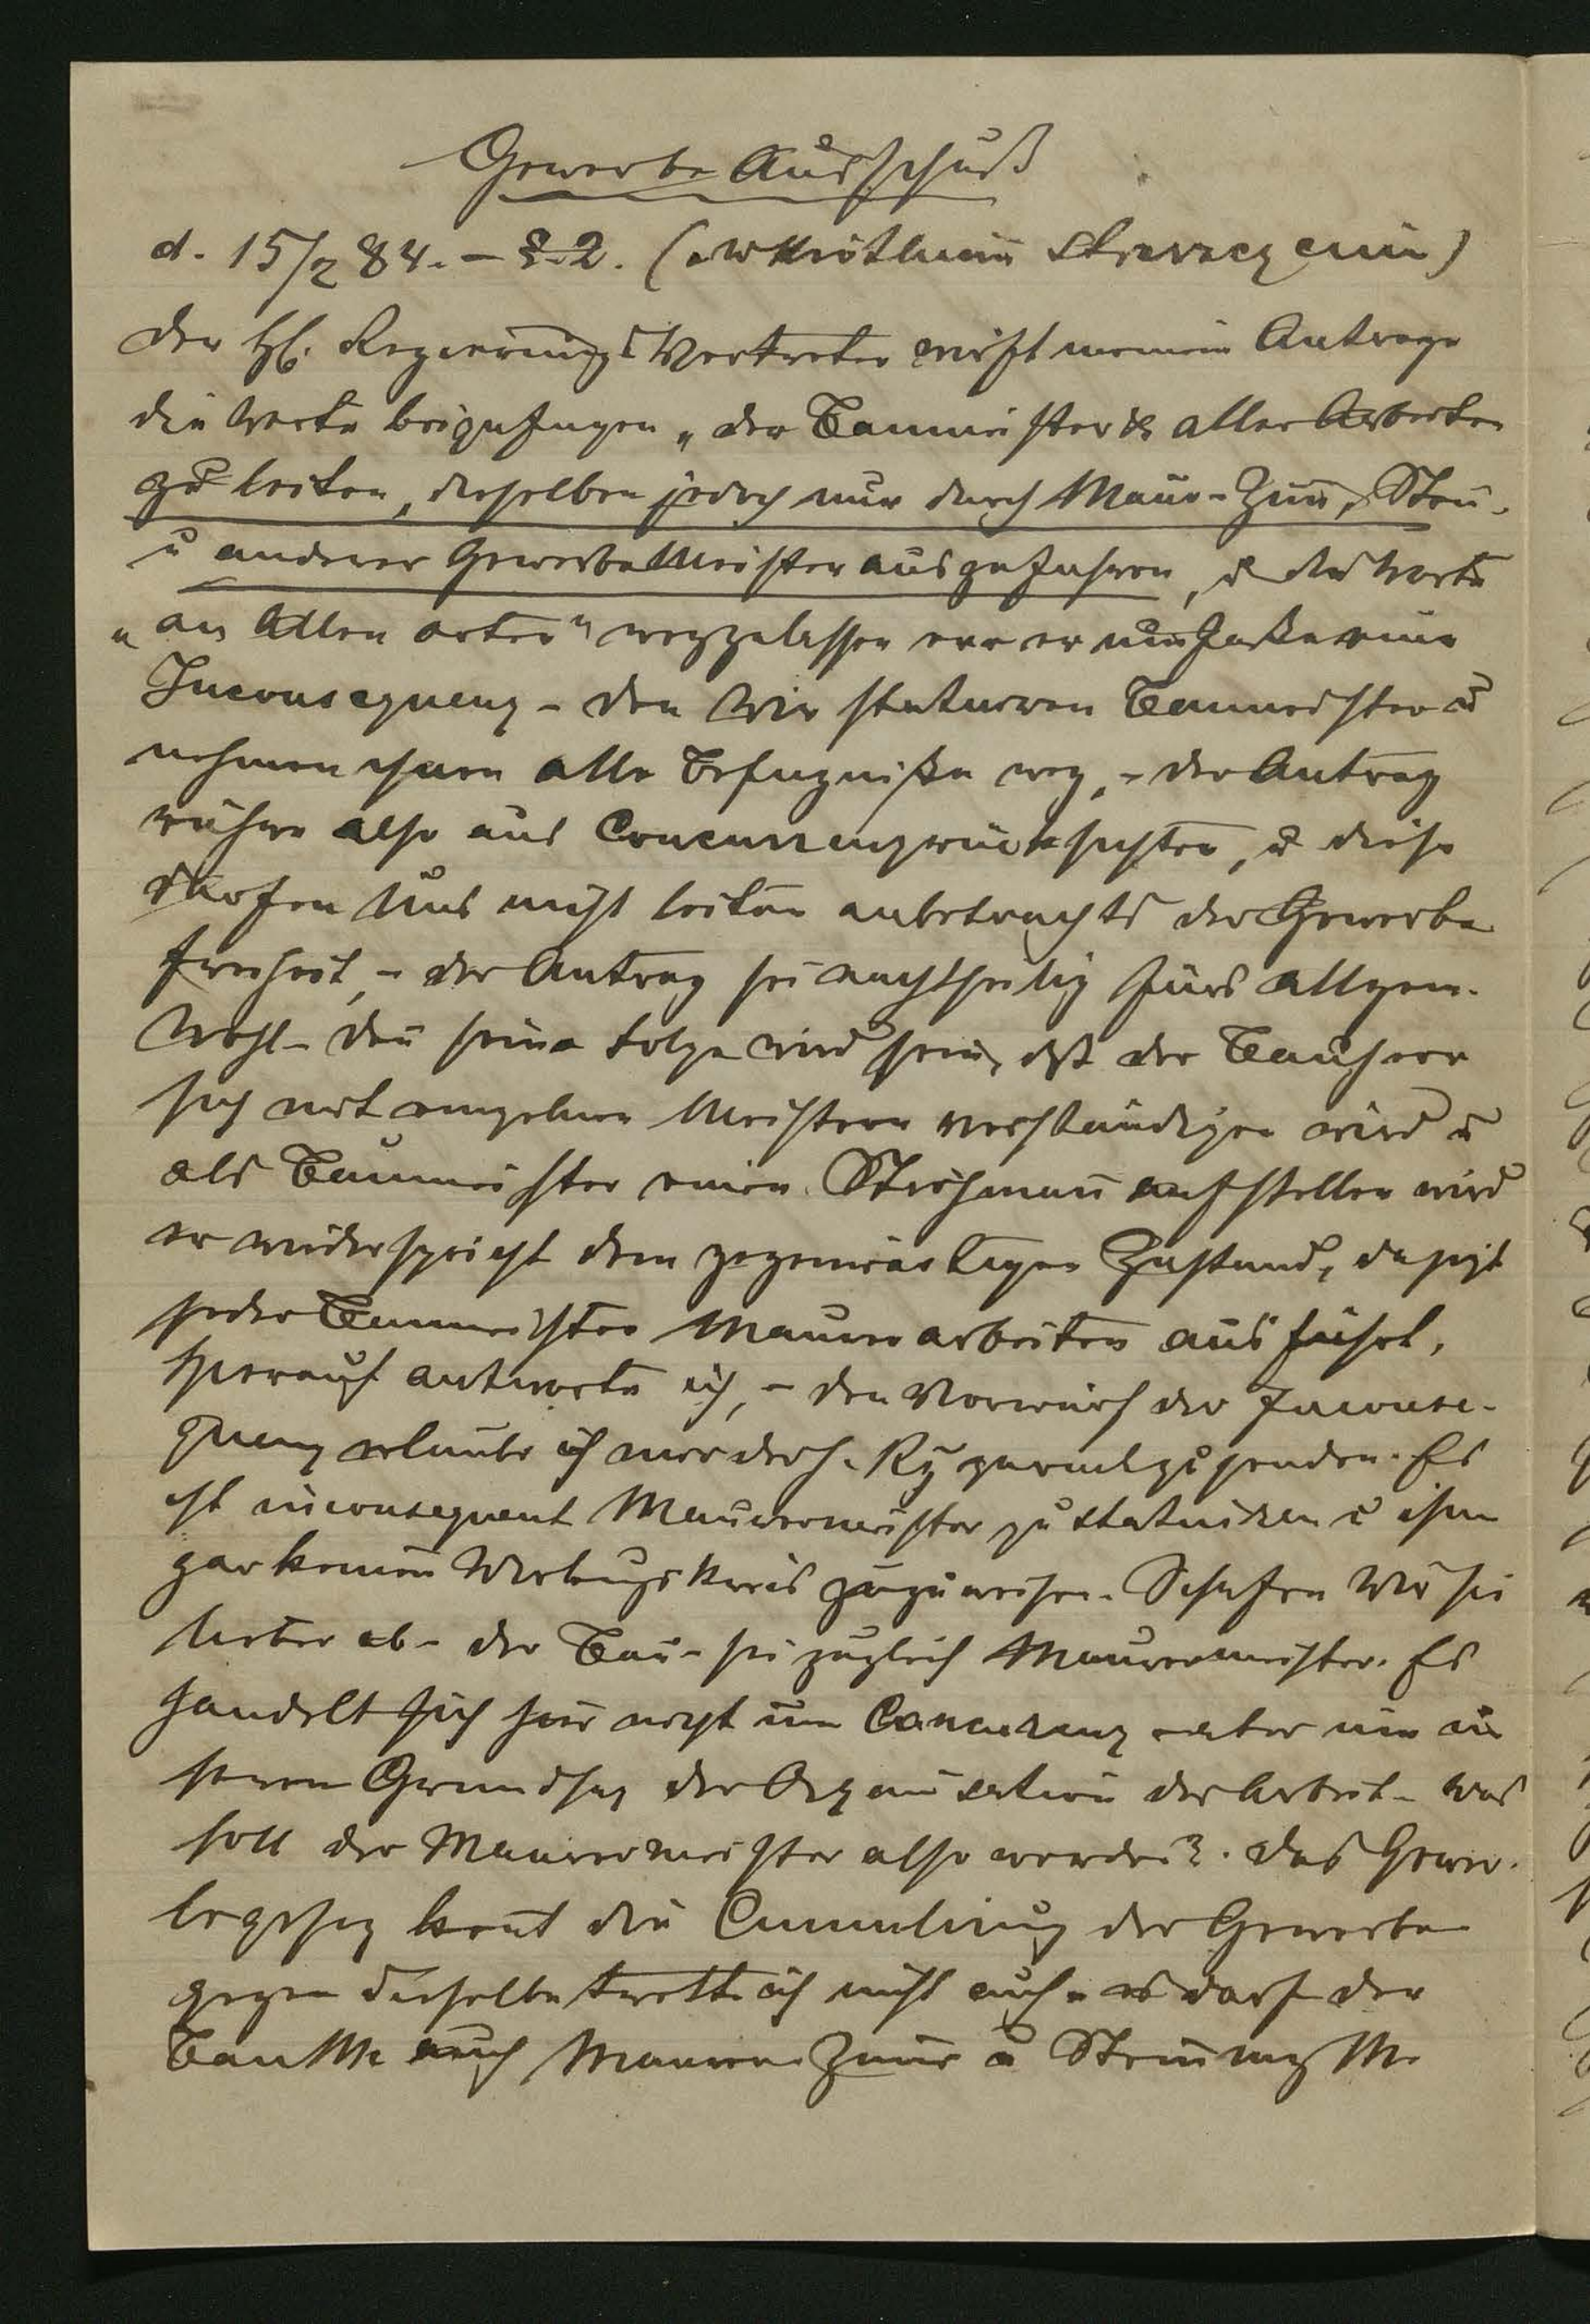 Gewerbe Ausschuß
d. 15/2 84. – § 2. (
Der H. Regierungs Vertreter wirft meinem Antrage
die Worte beizufügen „der Baumeister aller Arbeiten
zu leiten, dieselben jedoch nur durch Maur- Zim, Stein-
u anderer Gewerbe Meister auszuführen, u die Worte
„an allen Orten" wegzulassen vor er eine
Inconsequenz – den Wir statuiren Baumeister u
nehmen ihnen alle Befugniße weg, – der Antrag
rühre also aus Concurrenzrücksichten, u diese
dürfen Uns nicht leiten anbetrachts der Gewerbe
freiheit, – der Antrag sei nachtheilig fürs allgem.
Wohl – den seine Folge wird sein, dß der Bauherr
sich mit einzelnen Meistern verständigen wird u
als Baumeister einen Strohman aufstellen wird
er widerspricht dem gegenwärtigen Zustand, da jezt
jeder Baumeister Maurerarbeiten ausführt.
Hierauf antworte ich, – den Vorwurf der Inconse-
quenz erlaube ich mir der h. Rg zurückzusenden. Es
ist inconsequent Maurermeister zu statuiren u ihm
gar keinen Wirkungskreis zuzuweisen. Schafen Wir sie
lieber ab – der Bau- sei zugleich Maurermeister. Es
handelt sich hier nicht um Concurenz aber um
Grundsaz der Organisation der Arbeit – was
soll der Maurermeister also werden?. Das Gewer-
begesez kent die Cumulirung der Gewerbe
gegen dieselbe trette ich nicht auf – es darf der
Bau Me auch Maurer Zimr u Steinmez Me